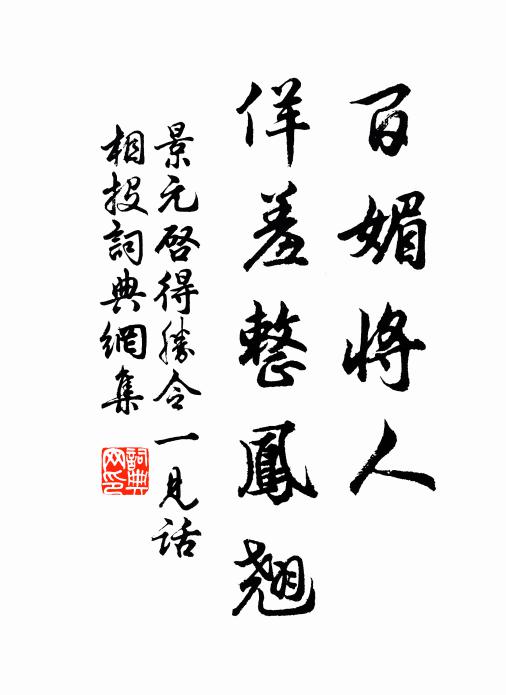 百媚將人
佯羞整鳳翹
景元啓得勝令一見話
相投詞典網集
詞典
网印